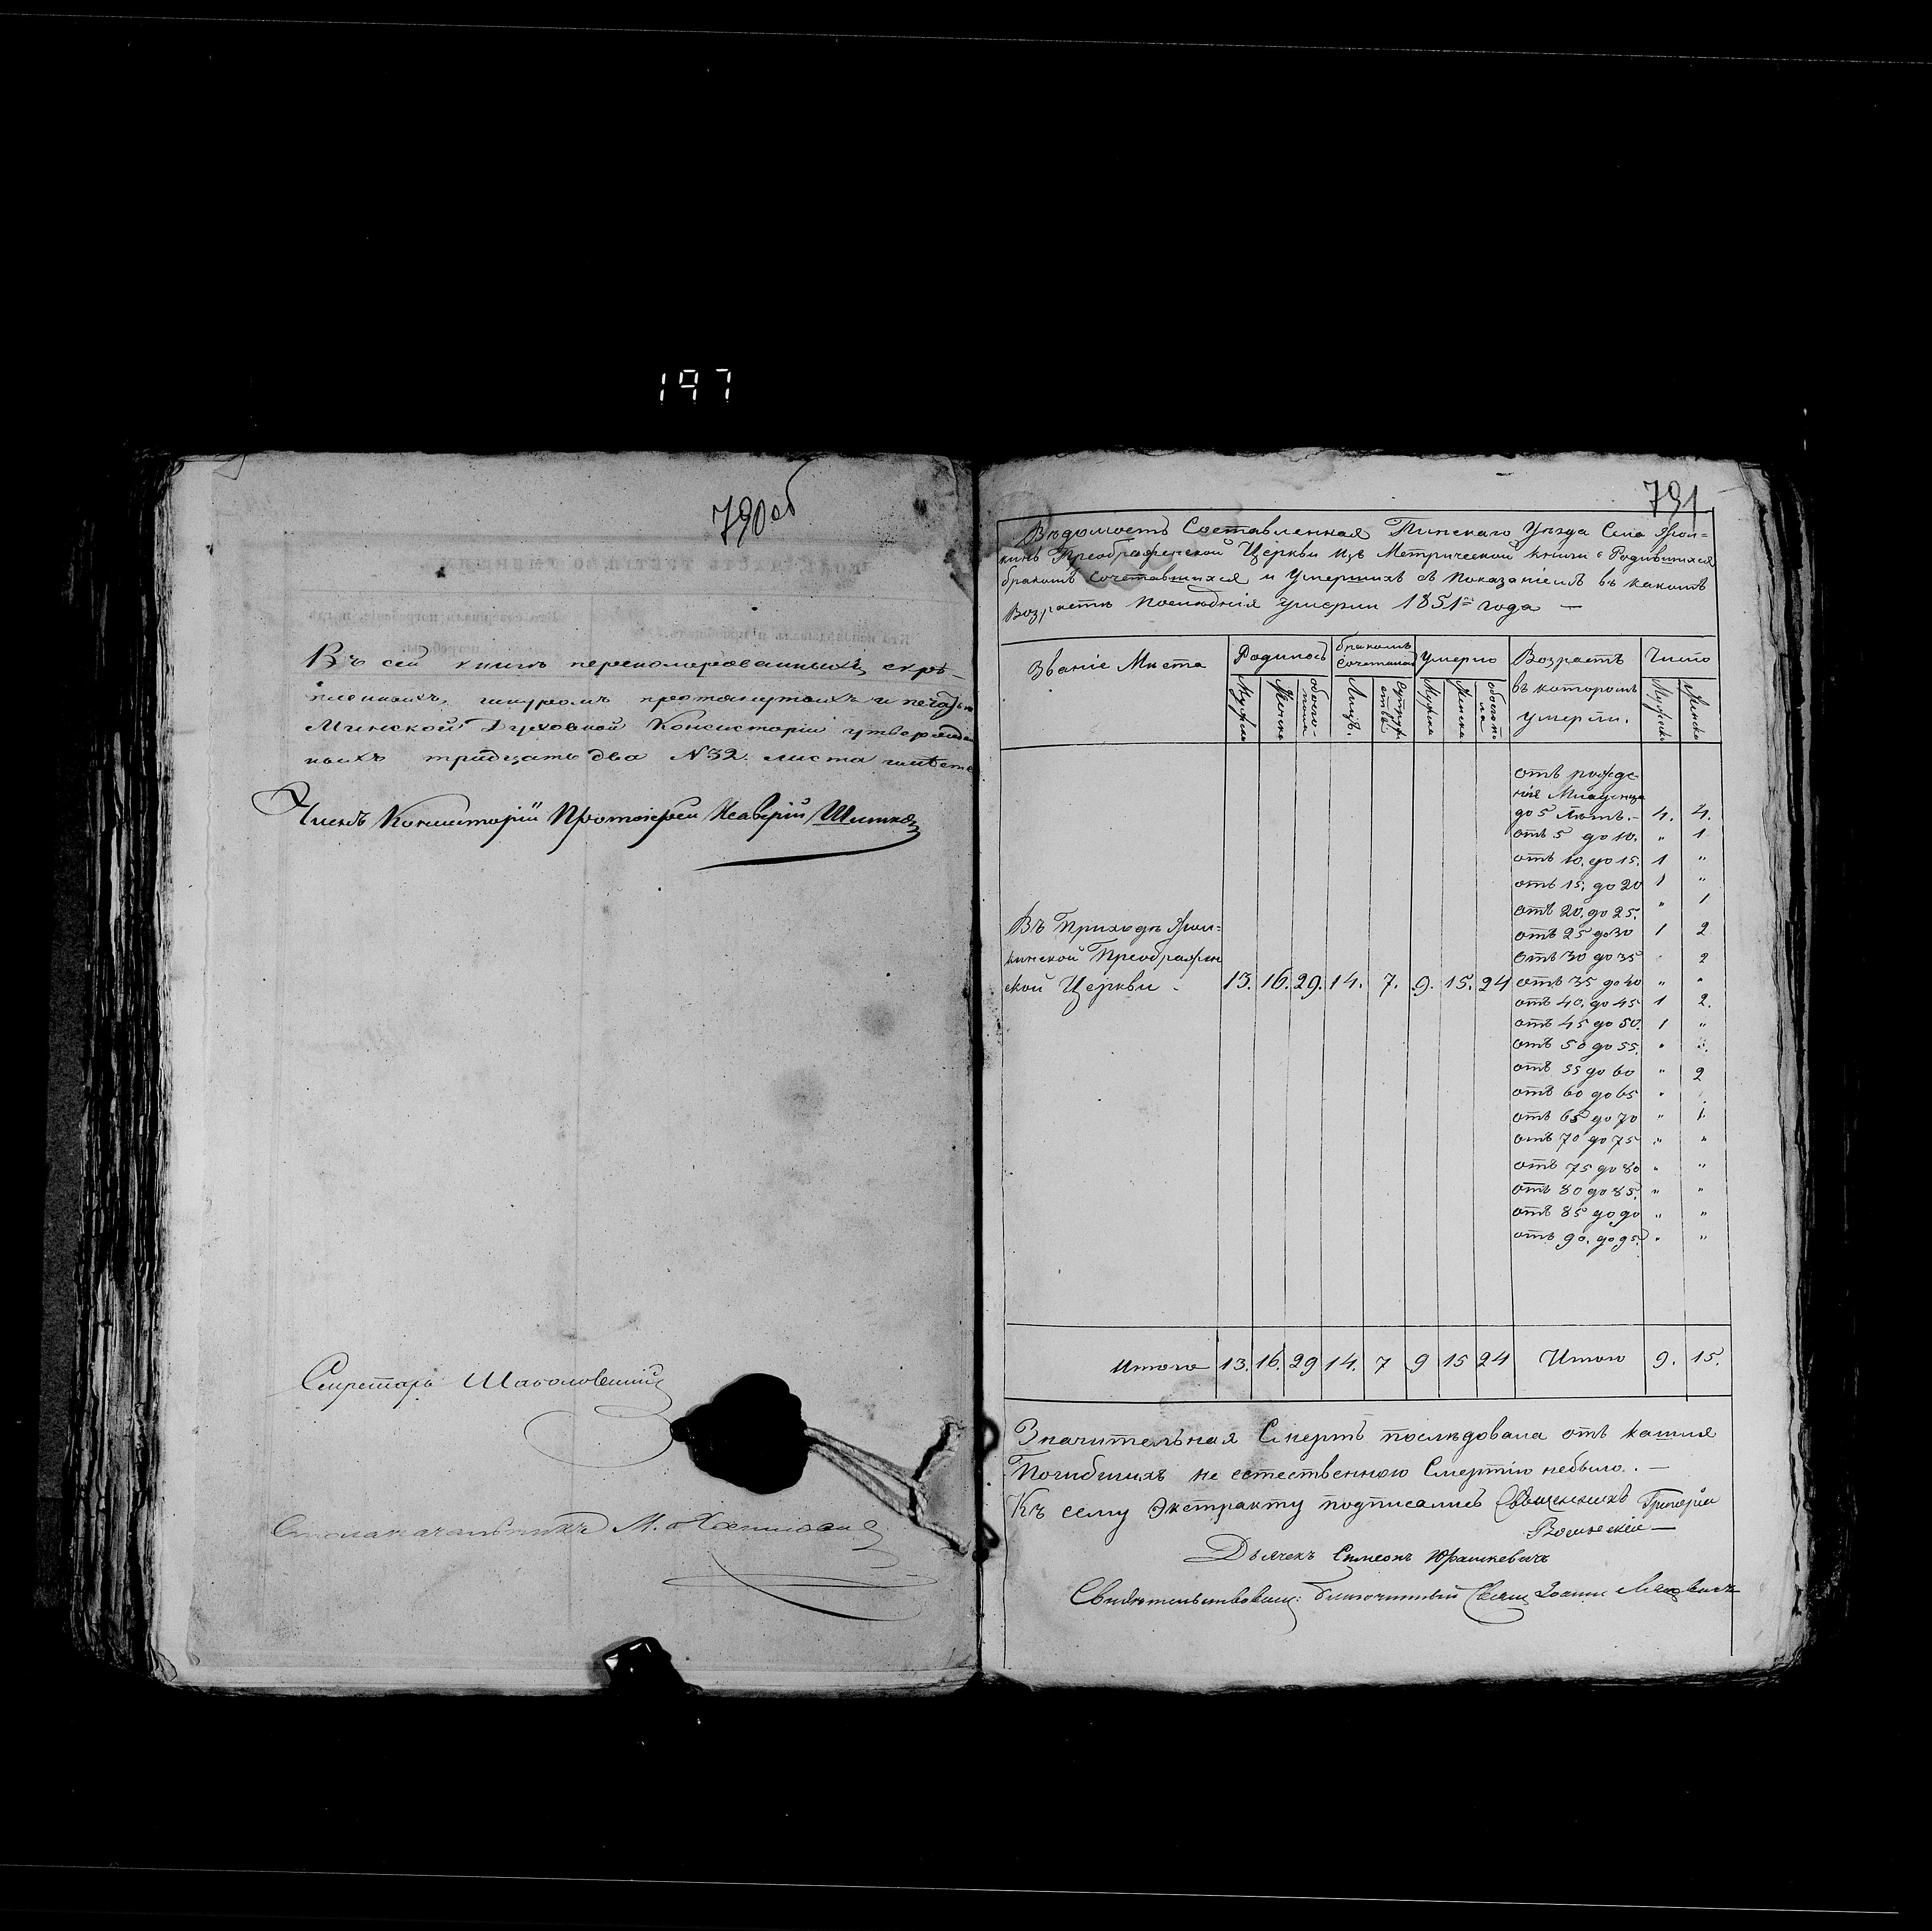 197
790об
Въ сей книгѣ перенумерованныхъ, скрѣ-
пленныхъ, шнуромъ протянутыхъ и печатью
Минской Духовной Консисторіи утвержден
ныхъ тридцать два №32. листа имѣетс
Членъ Консисторіи Протоіерей
Секретарь
Столоначальникъ М.
791
Вѣдомость Составленная Пинскаго Уѣзда Села
Преображенской Церкви изъ Метрической книги о Родившихся
бракомъ Сочетавшихся и Умершихъ съ показаніемъ въ какомъ
Возрастѣ послѣднія умерли 1851го года —
Званіе Мѣста
Родилось
бракомъ Сочеталось
Умерло
Возрастъ въ которомъ умерли.
Число
Мужска
Женска
обоего пола
Лицъ.
Супружествъ
Мужска
Женска
обоего пола
Мужска
Женска
отъ рожде-
нія Младенца
до 5 Лѣтъ. - 4. 4.
отъ 5 до 10. " 1
отъ 10. до 15. 1 "
отъ 15. до 20 1 "
отъ 20. до 25. " 1
отъ 25 до 30 1 2
отъ 30 до 35 " 2
отъ 35 до 40 " "
отъ 40. до 45 1 2.
отъ 45 до 50. 1 "
отъ 50 до 55. " "
отъ 55 до 60 " 2
отъ 60 до 65 "
отъ 65 до 70 " 1.
отъ 70 до 75 " "
отъ 75 до 80 " "
отъ 80 до 85. " "
отъ 85 до 90 " "
отъ 90. до 95. " "
Въ Приходѣ
Преображен
ской Церкви - 13. 16. 29. 14. 7. 9. 15. 24
Итого 13. 16. 29 14. 7 9 15 24 Итого 9. 15.
Значительная Смерть послѣдовала отъ кашля
Погибшихъ не естественною Смертію небыло. —
Къ сему Экстракту подписались Священникъ Григорій
Дьячекъ Симеонъ Юрашкевичъ
Свидѣтельствовалъ: благочинный Свящ Іоаннъ